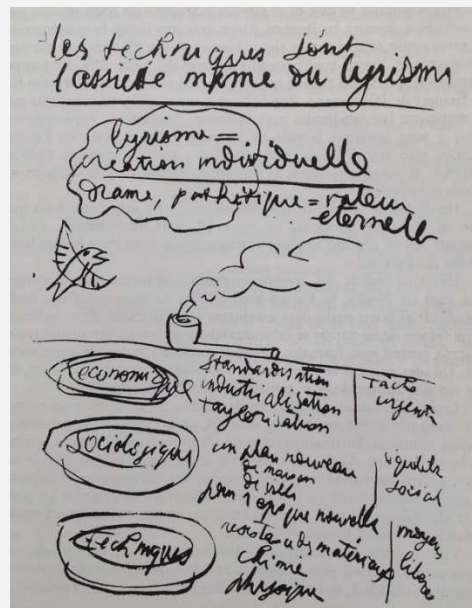 les techniques sont
l'assiette même du lyrisme
lyrisme =
création individuelle
drame, pathétique = valeur
éternelle
économique
standardisation
industrialisation
taylorisation
urgente
sociologique
un plan nouveau
de maison
de ville
pour l'époque nouvelle
social
techniques
resistance des matériaux
chimie
physique
moyens